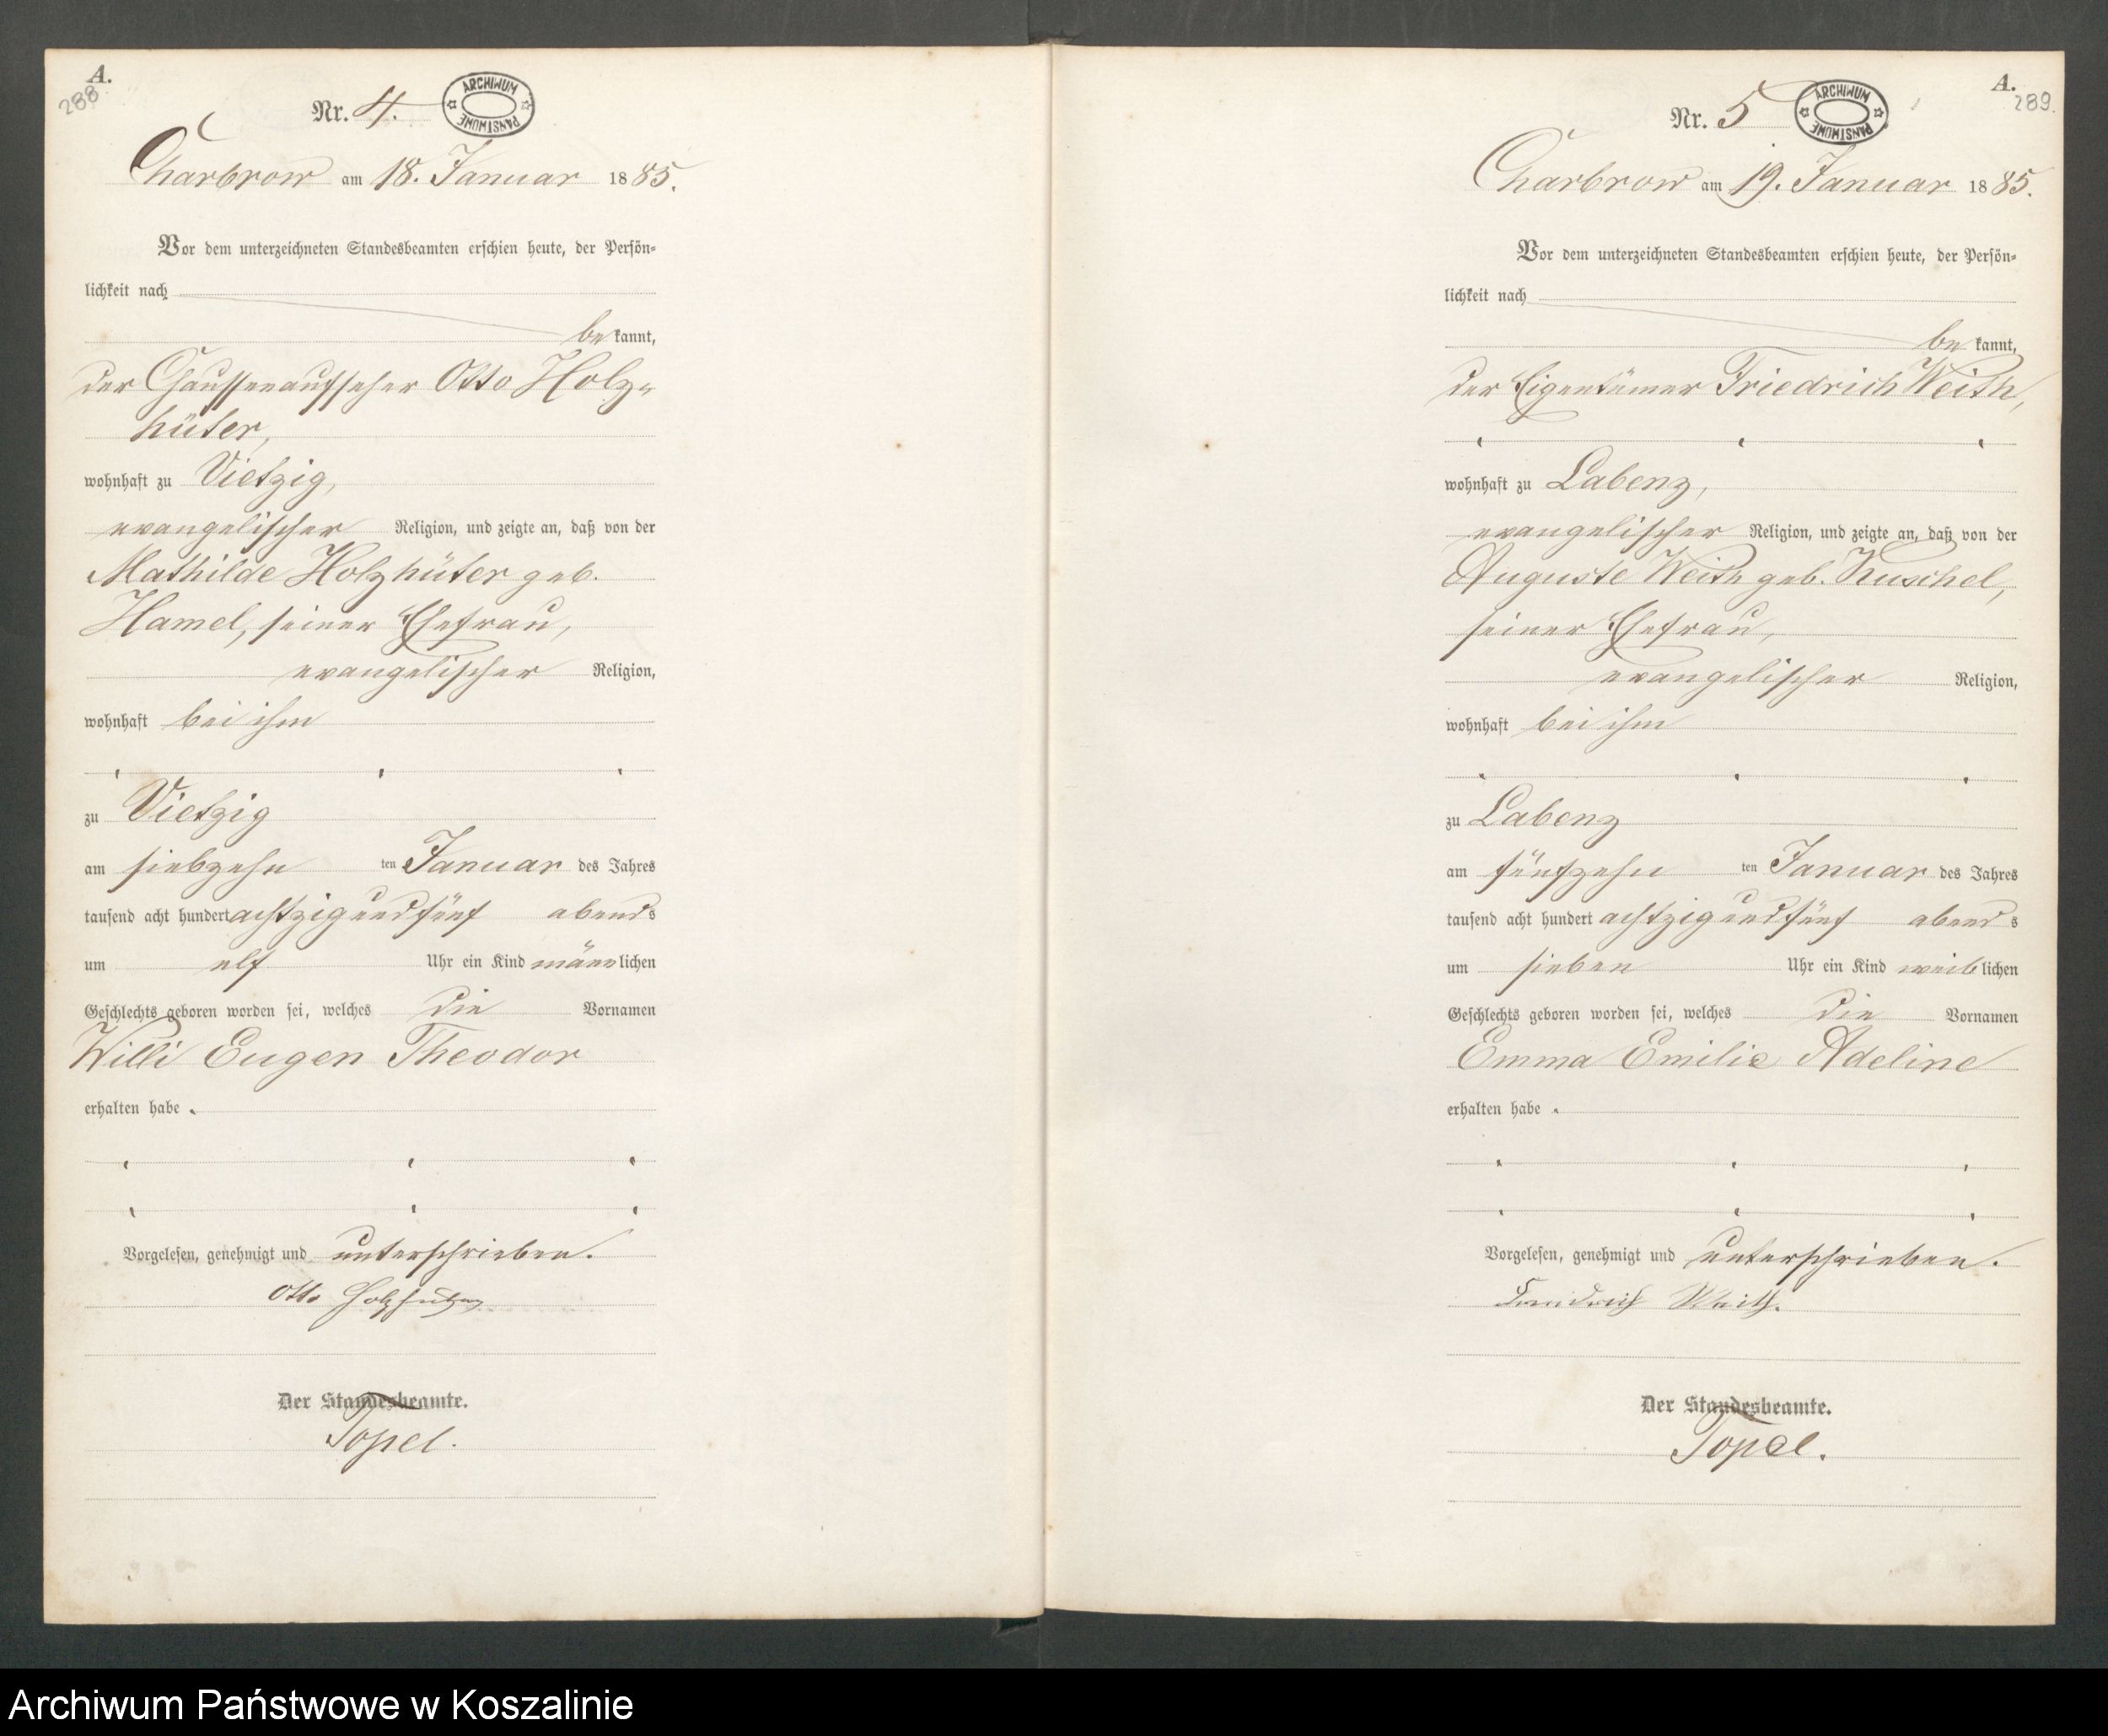 A.
288
Nr. 4.
ARCHIWUM PAŃSTWOWE
Charbrow am 18. Januar 1885.
Vor dem unterzeichneten Standesbeamten erschien heute, der Persön-
lichkeit nach
bekannt,
der Chausseeaufseher Otto Holz-
hüter,
wohnhaft zu Vietzig,
evangelischer Religion, und zeigte an, daß von der
Mathilde Holzhüter geb.
Hamel, seiner Ehefrau,
evangelischer Religion,
wohnhaft bei ihm
zu Vietzig
am siebzehn ten Januar des Jahres
tausend acht hundert achtzig und fünf abends
um elf Uhr ein Kind männlichen
Geschlechts geboren worden sei, welches die Vornamen
Willi Eugen Theodor
erhalten habe.
Vorgelesen, genehmigt und unterschrieben.
Otto Holzhüter
Der Standesbeamte.
Topel.
A.
289.
Nr. 5
ARCHIWUM PAŃSTWOWE
Charbrow am 19. Januar 1885.
Vor dem unterzeichneten Standesbeamten erschien heute, der Persön-
lichkeit nach
bekannt,
der Eigentümer Friedrich Weith,
wohnhaft zu Labenz,
evangelischer Religion, und zeigte an, daß von der
Auguste Weith geb. Kuschel,
seiner Ehefrau,
evangelischer Religion,
wohnhaft bei ihm
zu Labenz
am fünfzehn ten Januar des Jahres
tausend acht hundert achtzig und fünf abends
um sieben Uhr ein Kind weiblichen
Geschlechts geboren worden sei, welches die Vornamen
Emma Emilie Adeline
erhalten habe.
Vorgelesen, genehmigt und unterschrieben.
Friedrich Weith.
Der Standesbeamte.
Topel.
Archiwum Państwowe w Koszalinie